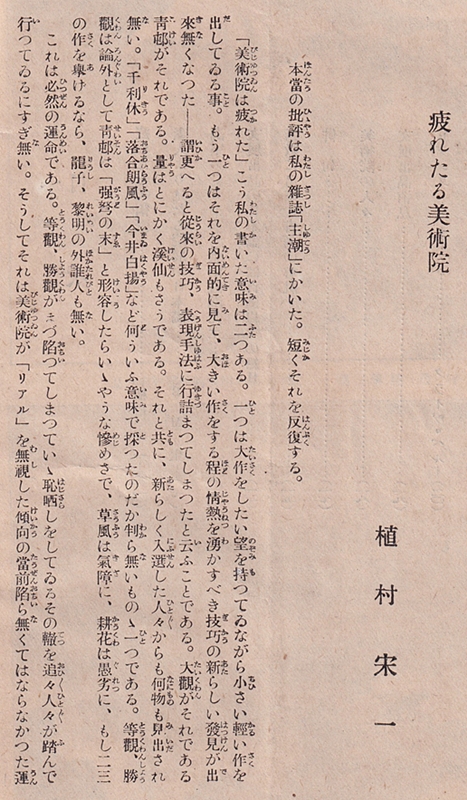 疲れたる美術院
植村宋一
本當の批評は私の雜誌「主潮」にかいた。短くそれを反復する。
「美術院は疲れた」こう私の書いた意味は二つある。一つは大作をしたい望を持つてゐながら小さい輕い作を
出してゐる事。もう一つはそれを内面的に見て、大きい作をする程の情熱を湧かすべき技巧の新らしい發見が出
來無くなつた――謂更へると從來の技巧、表現手法に行詰まつてしまつたと云ふことである。大觀がそれである
靑邨がそれである。量はとにかく溪仙もさうである。それと共に、新らしく入選した人々からも何物も見出され
無い。「千利休」「落合朗風」「今井白揚」など何ういふ意味で採つたのだか判ら無いものゝ一つである。等觀、勝
觀は論外として靑邨は「强弩の末」と形容したらいゝやうな慘めさで、草風は氣障に、耕花は愚劣に、もし二三
の作を擧けるなら、龍子、黎明の外誰人も無い。
これは必然の運命である。等觀、勝觀がまづ陷つてしまつていゝ恥晒しをしてゐるその轍を追々人々が踏んで
行つてゐるにすぎ無い。そうしてそれは美術院が「リアル」を無視した傾向の當前陷ら無くてはならなかつた運